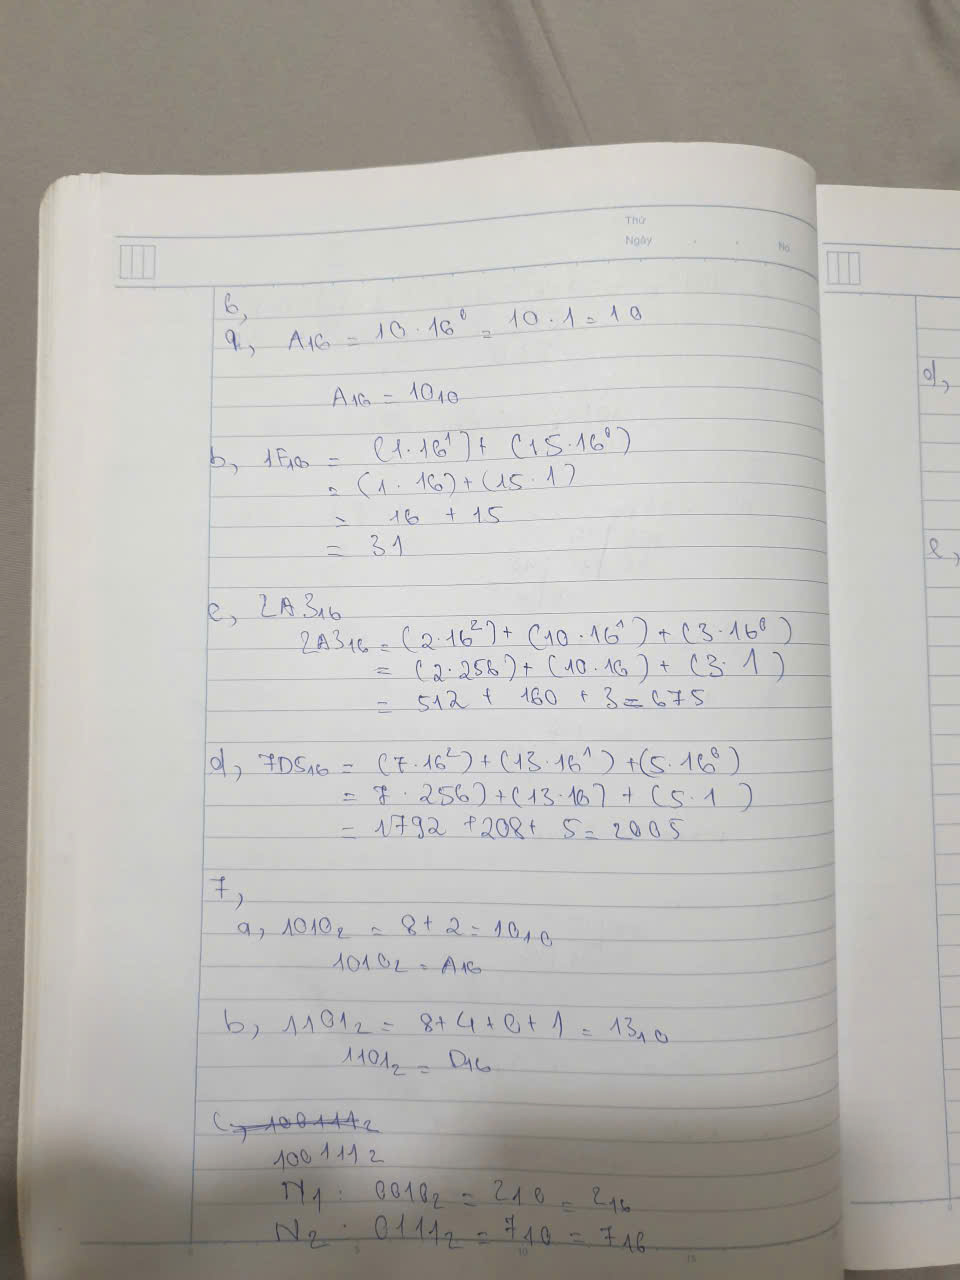 Thứ
Ngày . . No.
6,
a, A₁₆ = 10 · 16⁰ = 10 · 1 = 10
A₁₆ = 10₁₀
b, 1F₁₆ = (1·16¹) + (15·16⁰)
= (1 · 16) + (15 · 1)
= 16 + 15
= 31
c, 2A3₁₆
2A3₁₆ = (2·16²) + (10·16¹) + (3·16⁰)
= (2·256) + (10·16) + (3·1)
= 512 + 160 + 3 = 675
d, 7D5₁₆ = (7·16²) + (13·16¹) + (5·16⁰)
= 7 · 256) + (13·16) + (5·1)
= 1792 + 208 + 5 = 2005
7,
a, 1010₂ = 8 + 2 = 10₁₀
1010₂ = A₁₆
b, 1101₂ = 8 + 4 + 0 + 1 = 13₁₀
1101₂ = D₁₆
c, 100111₂
100111₂
N₁ : 0010₂ = 2₁₀ = 2₁₆
N₂ : 0111₂ = 7₁₀ = 7₁₆
0 5 10 15
d,
e,